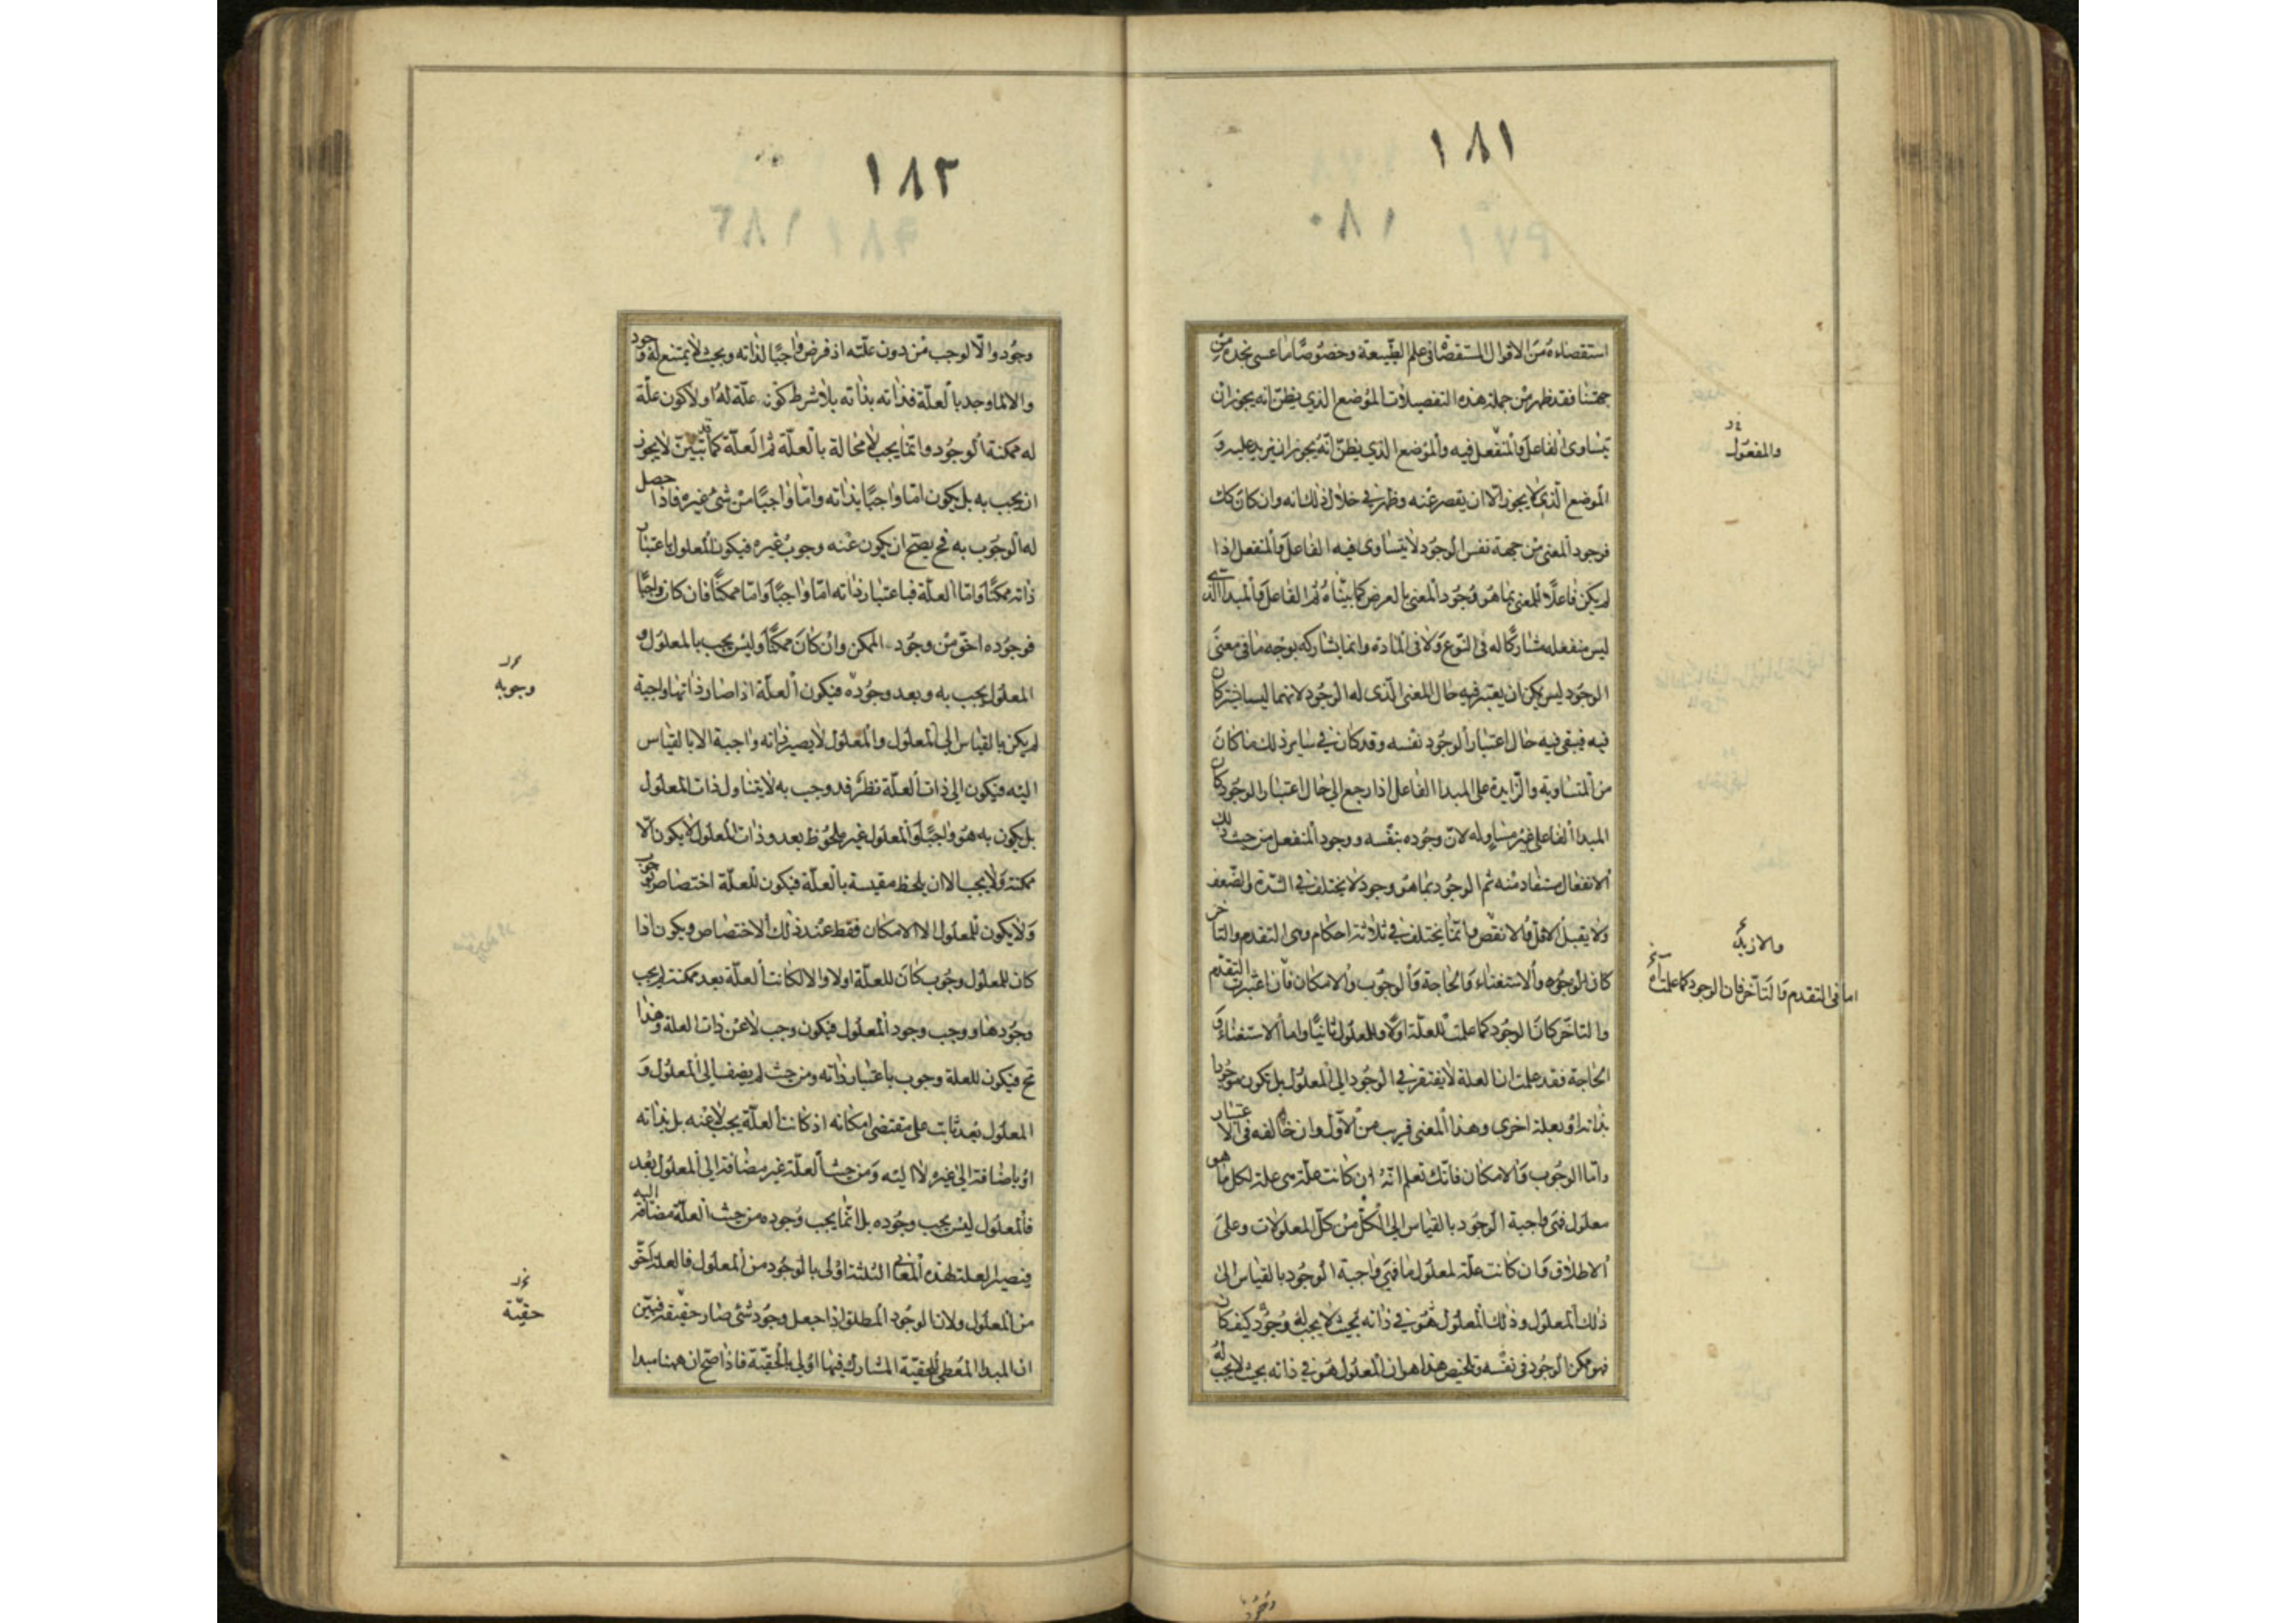 ١٨١
١٨٠
استقصاءه من الاقوال المستقصاة فى علم الطبيعة وخصوصا ما عسى نجده من
جهتنا فقد ظهر من جملة هذه التفصيلات الموضع الذي يظن انه يجوز ان
يتساوى الفاعل والمنفعل فيه والموضع الذي يظن انه يجوز ان يزيد عليه و
والمفعول
الموضع الذي لا يجوز الا ان يقصر عنه وظهر في خلال ذلك انه وان كان كك
فوجود المعنى من جهة نفس الوجود لا يتساوى فيه الفاعل والمنفعل اذا
لم يكن فاعلا للمعنى بما هو وجود المعنى بالعرض كما بيناه ثم الفاعل والمبدا الذي
ليس منفعله مشاركا له فى النوع ولا فى المادة وانما يشاركه بوجه ما فى معنى
الوجود ليس يمكن ان يعتبر فيه حال المعنى الذى له الوجود لانهما ليسا يشتركان
فيه فبقى فيه حال اعتبار الوجود نفسه وقد كان في ساير ذلك ما كان
من المتساوية والزايدة على المبدا الفاعل اذا رجع الى حال اعتبار الوجود كان
المبدا الفاعلى غير مساو له لان وجوده بنفسه ووجود المنفعل من حيث ذلك
الانفعال مستفاد منه ثم الوجود بما هو وجود لا يختلف في الشدة والضعف
ولا يقبل الاقل والانقص وانما يختلف في ثلاثة احكام وهى التقدم والتاخر
والازيد
كان الوجود والاستغناء والحاجة والوجوب والامكان فان اعتبرت التقدم
اما فى التقدم والتاخر فان الوجود كما علمت
والتاخر كان الوجود كما علمت للعلة اولا وللمعلول ثانيا واما الاستغناء و
الحاجة فقد علمت ان العلة لا يفتقر في الوجود الى المعلول بل تكون موجودا
بذاته او بعلة اخرى وهذا المعنى قريب من الاول وان خالفه فى الاعتبار
واما الوجوب والامكان فانك تعلم انه ان كانت علة هى علة لكل ما هو
معلول فهى واجبة الوجود بالقياس الى الكل من كل المعلولات وعلى
الاطلاق وان كانت علة لمعلول ما فهي واجبة الوجود بالقياس الى
ذلك المعلول وذلك المعلول هو في ذاته بحيث لا يجب له وجود كيف كان
فهو ممكن الوجود فى نفسه وتلخيص هذا هو ان المعلول هو في ذاته بحيث لا يجب له
١٨٢
وجود والا لوجب من دون علته اذ فرض واجبا لذاته وبحيث لا يمتنع له وجود
والا لما وجد بالعلة فذاته بذاته بلا شرط كون علة له او لا كون علة
له ممكنة الوجود وانما يجب لا محالة بالعلة ثم العلة كما تبين لا يجوز
ان يجب به بل يكون اما واجبا بذاته واما واجبا من شئ غيره فاذا حصل
له الوجوب به فح يصح ان يكون عنه وجوب غيره فيكون المعلول باعتبار
ذاته ممكنا واما العلة فباعتبار ذاته اما واجبا واما ممكنا فان كان واجبا
فوجوده احق من وجود الممكن وان كان ممكنا وليس يجب بالمعلول و
وجوبه
المعلول يجب به وبعد وجوده فيكون العلة اذا صار ذاتها واجبة
لم يكن بالقياس الى المعلول والمعلول لا يصير ذاته واجبة الا بالقياس
اليه فيكون الى ذات العلة نظر قد وجب به لا يتناول ذات المعلول
بل يكون به هو واجبا والمعلول غير ملحوظ بعد وذات المعلول لا يكون الا
ممكنة ولا يجب الا ان يلحظ مقيسة بالعلة فيكون للعلة اختصاص وجوب
ولا يكون للمعلول الا الامكان فقط عند ذلك الاختصاص ويكون اذا
كان للمعلول وجوب كان للعلة اولا والا لكانت العلة بعد ممكنة لم يجب
وجودها ووجب وجود المعلول فيكون وجب لا عن ذات العلة وهذا
مح فيكون للعلة وجوب باعتبار ذاته ومن حيث لم يضف الى المعلول و
المعلول بعد ثابت على مقتضى امكانه اذ كانت العلة يجب لا عنه بل بذاته
او باضافة الى غيره لا اليه ومن حيث العلة غير مضافة الى المعلول بعد
فالمعلول ليس يجب وجوده بل انما يجب وجوده من حيث العلة مضافة اليه
فيصير العلة لهذه المعانى الثلثة اولى بالوجود من المعلول فالعلة احق
من المعلول ولان الوجود المطلق اذا جعل وجود شئ صار حقيقة فبين
حقية
ان المبدا المعطى للحقية المشارك فيها اولى بالحقية فاذا صح ان ههنا مبدا